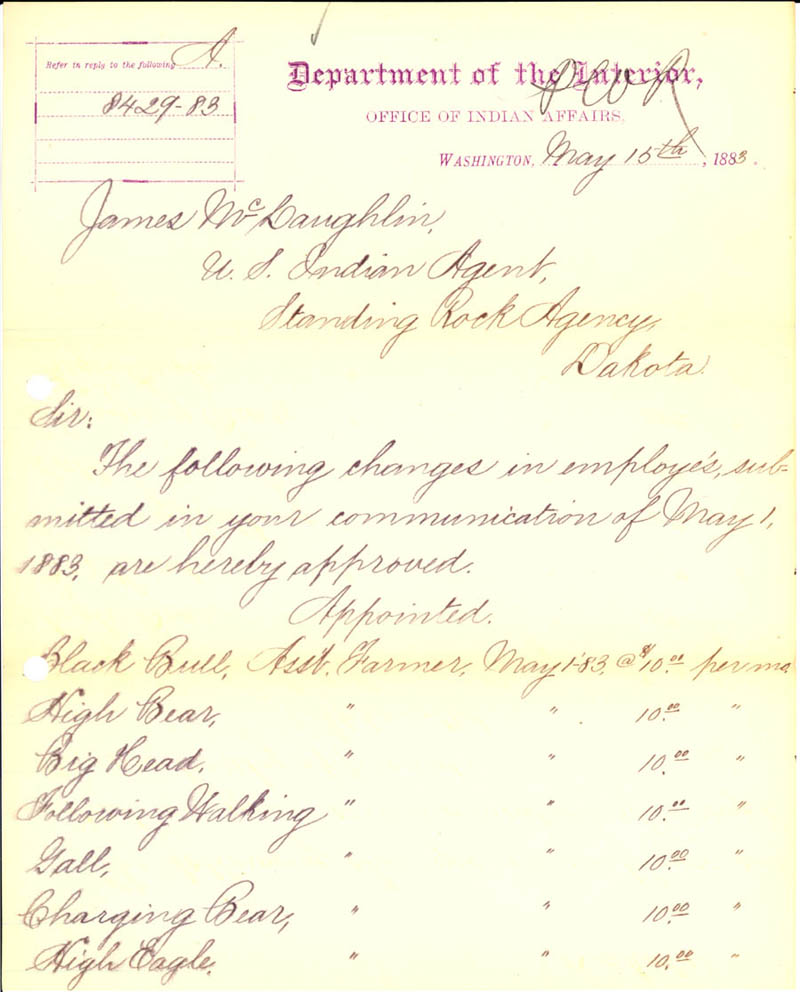 Refer in reply to the following A.
8429-83
Department of the Interior,
OFFICE OF INDIAN AFFAIRS,
WASHINGTON, May 15th, 1883.
James McLaughlin,
U. S. Indian Agent,
Standing Rock Agency,
Dakota.
Sir:
The following changes in employe's, sub-
mitted in your communication of May 1,
1883, are hereby approved.
Appointed.
Black Bull, Asst. Farmer, May 1-83, @ $10.00 per mo.
High Bear, " " 10.00 "
Big Head, " " 10.00 "
Following Walking " " 10.00 "
Gall, " " 10.00 "
Charging Bear, " " 10.00 "
High Eagle, " " 10.00 "